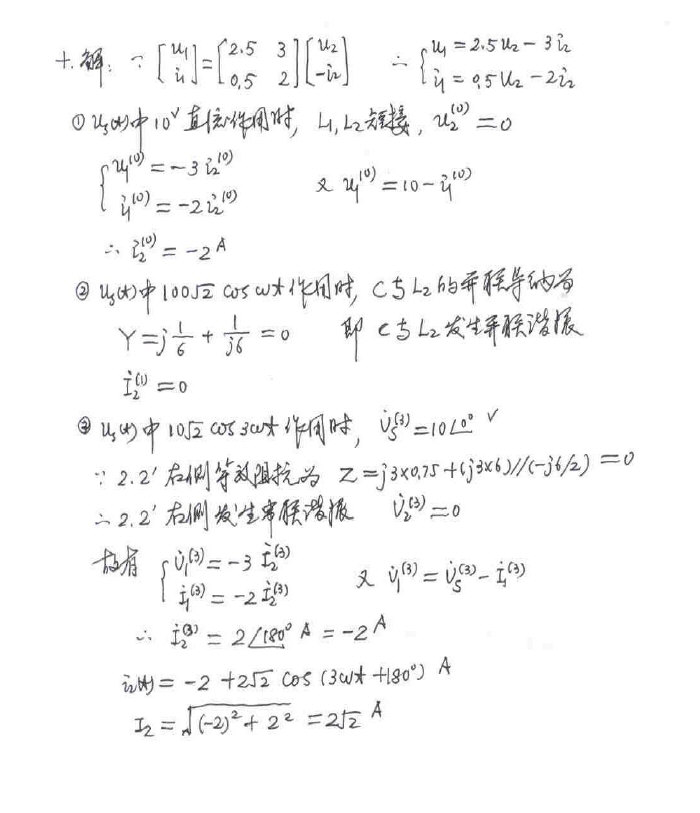 十.解: ∵ [u₁ i₁] = [2.5 3 0.5 2] [u₂ -i₂] ∴ { u₁ = 2.5u₂ - 3i₂
i₁ = 0.5u₂ - 2i₂
① uₛ(t)中10ⱽ直流作用时, L₁, L₂短接, u₂⁽⁰⁾ = 0
{ u₁⁽⁰⁾ = -3 i₂⁽⁰⁾
i₁⁽⁰⁾ = -2 i₂⁽⁰⁾ 又 u₁⁽⁰⁾ = 10 - i₁⁽⁰⁾
∴ i₂⁽⁰⁾ = -2 A
② uₛ(t)中100√2 cos ωt 作用时, C与L₂的并联导纳为
Y = j 1/6 + 1/j6 = 0 即 C与L₂发生并联谐振
İ₂⁽¹⁾ = 0
③ uₛ(t)中10√2 cos 3ωt 作用时, U̇ₛ⁽³⁾ = 10∠0° V
∵ 2.2′右侧等效阻抗为 Z = j3×0.75 + (j3×6)//(-j6/2) = 0
∴ 2.2′右侧发生串联谐振 U̇₂⁽³⁾ = 0
故有 { U̇₁⁽³⁾ = -3 İ₂⁽³⁾
İ₁⁽³⁾ = -2 İ₂⁽³⁾ 又 U̇₁⁽³⁾ = U̇ₛ⁽³⁾ - İ₁⁽³⁾
∴ İ₂⁽³⁾ = 2∠180° A = -2 A
i₂(t) = -2 + 2√2 cos (3ωt + 180°) A
I₂ = √((-2)² + 2²) = 2√2 A